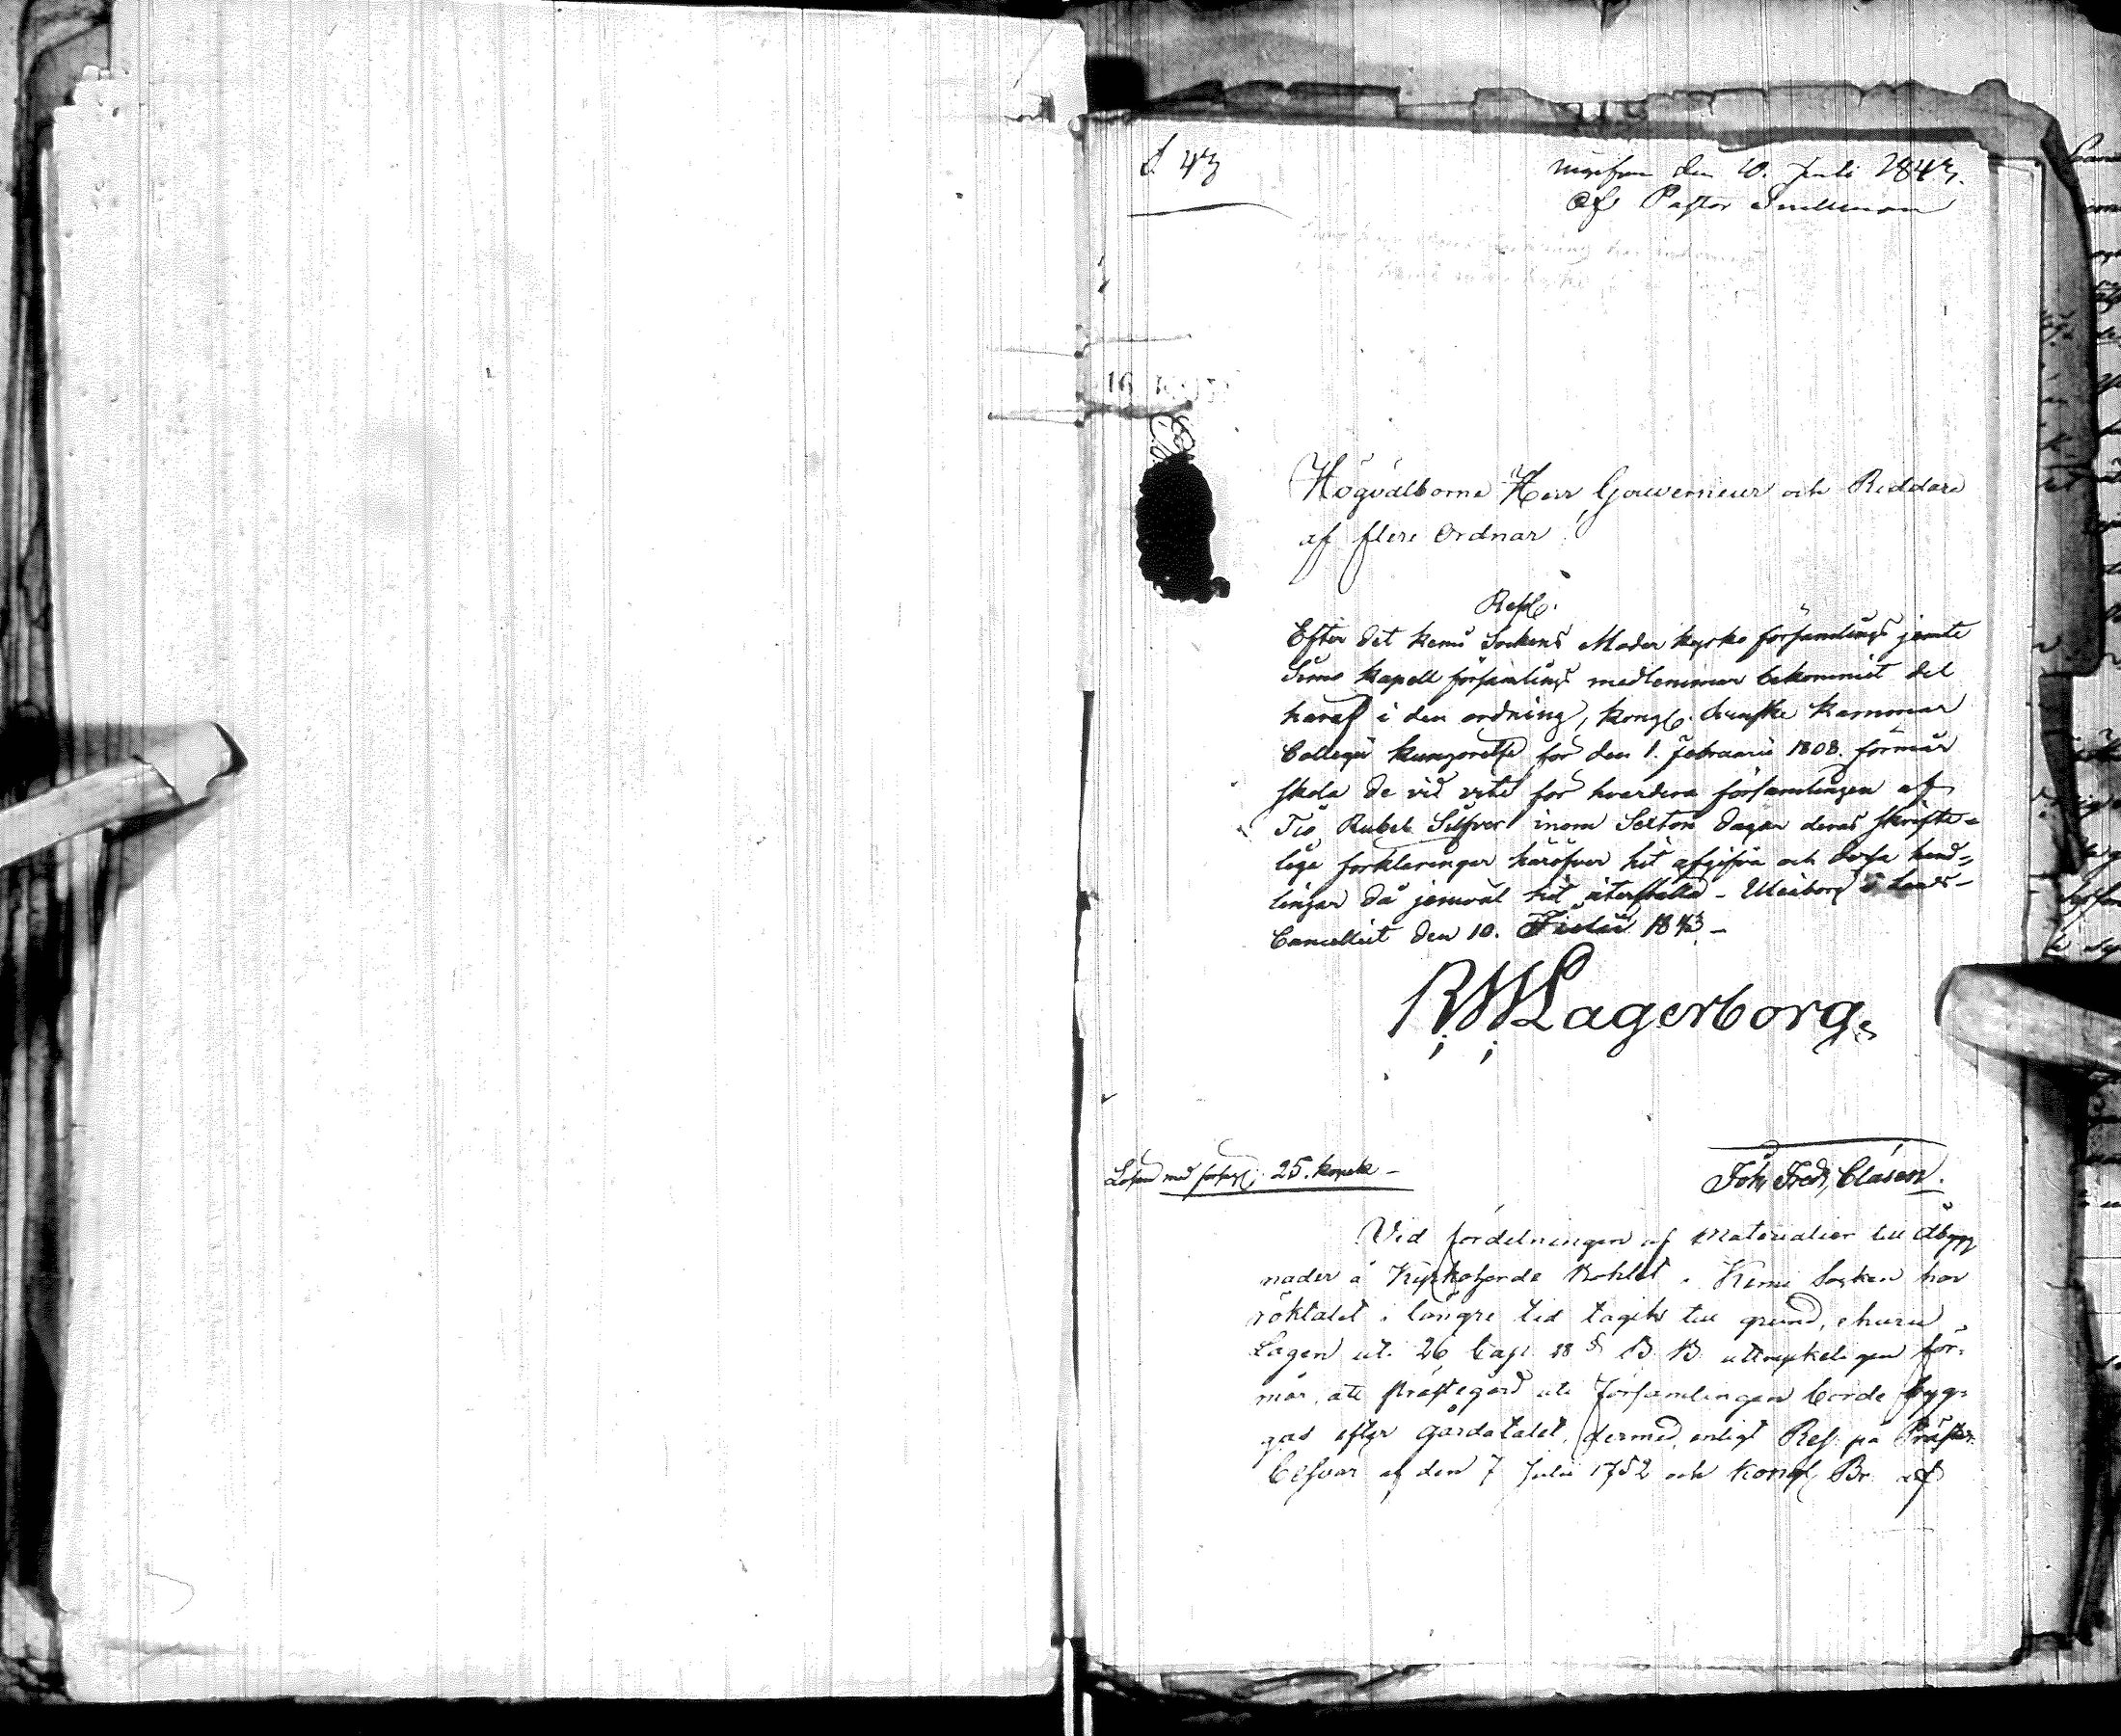 d. 43
den 10. Juli 1843.
af Pastor Snellman
Högvälborne Herr Gouverneur och Riddare
af flere Ordnar
Resol.
Efter det Kemi Sockens Moder kyrko församlings jemte
Simo Kapell församlings medlemmar bekommit del
häraf i den ordning, Kongl. Svenska Kammar
Collegii kungörelse for den 1. Februarii 1808. förmår
skola de vid vite for hvardera församlingen af
Tio Rubel Silfver inom Sexton dagar deras skrifte-
lige forklaringar häröfver hit afgifva och dessa hand-
lingar då jemväl hit återställa – Uleåborg i Lands-
Cancelliet den 10. Julii 1843 –
RWLagerborg.
Lösen med 25. kopek –
Joh. Fredr. Clasén.
Vid fördelningen af Materialier till Åbygg
nader å Kyrkoherde Bohlet i Kemi Socken har
röktalet i längre tid tagits till grund, ehuru
Lagen uti 26 Cap. 18 § B. B. uttryckeligen för-
mår, att Prästegård uti församlingen borde byg-
gas efter gårdatalet, dermed, enligt Res. på Präster.
Besvär af den 7 Julii 1752 och Kongl. Br. af